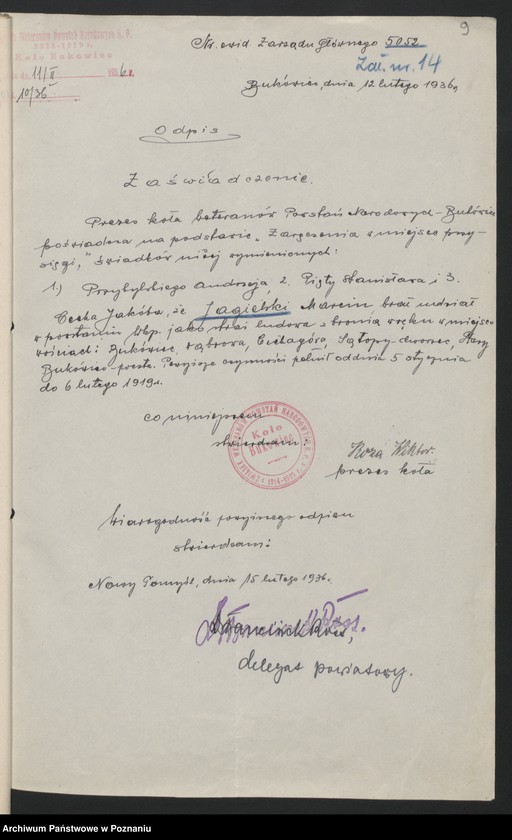 9
Nr. ewid. Zarządu Głównego 5052
Zał. nr. 14
Koło Bukowiec
11/II 1936 r.
10/36
Bukówiec, dnia 12 lutego 1936 r.
Odpis
Zaświadczenie.
Prezes koła weteranów Powstań Narodowych – Bukówiec
poświadcza na podstawie „Zaręczenia w miejsce przy-
sięgi," świadków niżej wymienionych:
1.) Przybylskiego Andrzeja 2. Pięty Stanisława i 3.
Cecha Jakóba, że Jagielski Marcin brał udział
w powstaniu Wlkp. jako straż ludowa z bronią w ręku w miejsco
wościach: Bukówiec, Dąbrowa, Cichagóra, Sątopy-dworzec, Stary
Bukówiec. Powyższe czynności pełnił od dnia 5 stycznia
do 6 lutego 1919 r.
co niniejszem
stwierdzam:
Koło
BUKOWIEC
Koza Wiktor
prezes koła
Wiarogodność powyższego odpisu
stwierdzam:
Nowy Tomyśl, dnia 15 lutego 1936 r.
delegat powiatowy.
Archiwum Państwowe w Poznaniu